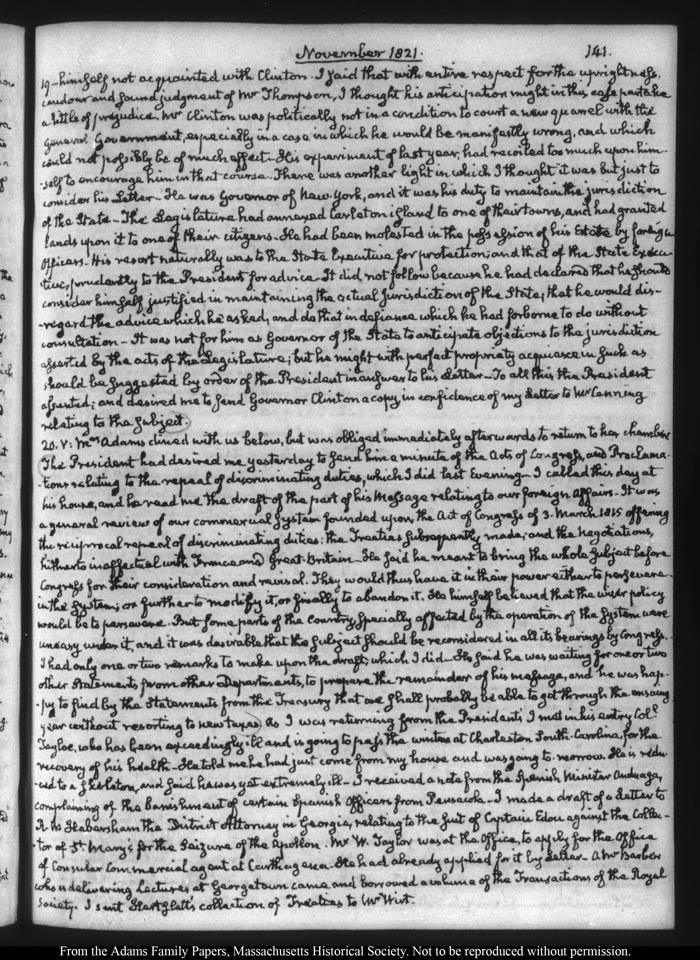 November 1821.
141.
19 - himself not acquainted with Clinton. I said that with entire respect for the uprightness,
candour and sound judgment of Mr Thompson, I thought his anticipation might in this case partake
a little of prejudice. Mr Clinton was politically not in a condition to court a new quarrel with the
general Government, especially in a case in which he would be manifestly wrong, and which
could not possibly be of much effect - His experiment of last year, had recoiled too much upon him-
-self to encourage him in that course. There was another light in which I thought it was but just to
consider his Letter - He was Governor of New York, and it was his duty to maintain the jurisdiction
of the State - The Legislature had annexed Carleton island to one of their towns, and had granted
lands upon it to one of their citizens - He had been molested in the possession of his Estate by foreign
Officers - His resort naturally was to the State Executive for protection; and that of the State Execu-
-tive, prudently to the President for advice - It did not follow because he had declared that he should
consider himself justified in maintaining the actual Jurisdiction of the State, that he would dis-
-regard the advice which he asked, and do that in defiance which he had forborne to do without
consultation - It was not for him as Governor of the State to anticipate objections to the jurisdiction
asserted by the acts of the Legislature; but he might with perfect propriety acquiesce in such as
should be suggested by order of the President in answer to his Letter - To all this the President
assented; and desired me to send Governor Clinton a copy in confidence of my Letter to Mr Canning
relating to the subject.
20. V: Mrs Adams dined with us below, but was obliged immediately afterwards to return to her chamber
The President had desired me yesterday to send him a minute of the Acts of Congress, and Proclama-
-tions relating to the repeal of discriminating duties, which I did last Evening - I called this day at
his house, and he read me the draft of the part of his Message relating to our foreign affairs - It was
a general review of our commercial System founded upon the Act of Congress of 3. March 1815 offering
the reciprocal repeal of discriminating duties: the Treaties subsequently made, and the Negotiations,
hitherto ineffectual with France and Great-Britain - He said he meant to bring the whole subject before
Congress for their consideration and revisal. They would thus have it in their power either to persevere
in the System; or further to modify it, or finally to abandon it. He himself believed that the wiser policy
would be to persevere. But some parts of the Country, specially affected by the operation of the System were
uneasy under it, and it was desirable that the subject should be reconsidered in all its bearings by Congress.
I had only one or two remarks to make upon the draft, which I did - He said he was waiting for one or two
other Statements from other Departments, to prepare the remainder of his message, and he was hap-
-py to find by the Statements from the Treasury that we shall probably be able to get through the ensuing
year without resorting to new taxes. As I was returning from the President's I met in his entry Coll.
Tayloe, who has been exceedingly ill and is going to pass the winter at Charleston South-Carolina, for the
recovery of his health - He told me he had just come from my house and was going to-morrow. He is redu-
-ced to a skeleton, and said he was yet extremely ill - I received a note from the Spanish Minister Anduaga,
complaining of the banishment of certain Spanish Officers from Pensacola - I made a draft of a Letter to
R. W. Habersham the District Attorney in Georgia, relating to the suit of Captain Edou against the Collec-
-tor of St Mary's for the seizure of the Apollon. Mr W. Taylor was at the Office, to apply for the Office
of Consular Commercial agent at Carthagena - He had already applied for it by Letter - A Mr Barber
who is delivering Lectures at Georgetown came and borrowed a volume of the Transactions of the Royal
Society. I sent collection of Treaties to Mr Wirt.
From the Adams Family Papers, Massachusetts Historical Society. Not to be reproduced without permission.